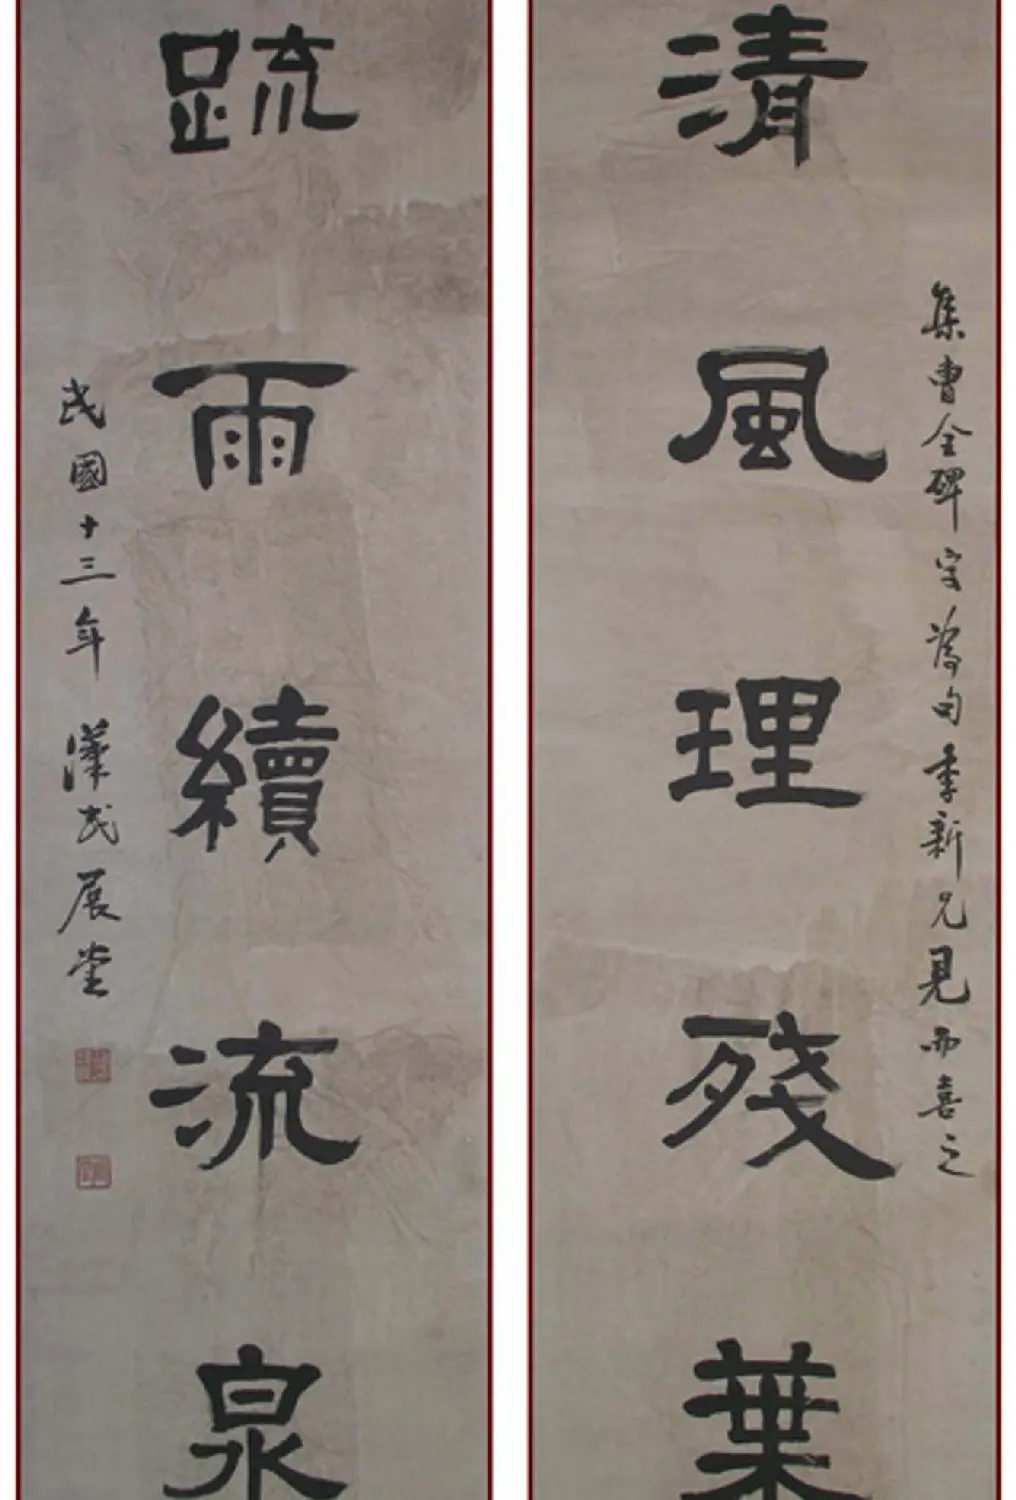 集曹全碑字為句季新兄見而喜之
清風理殘葉
疏雨續流泉
民國十三年 漢民展堂